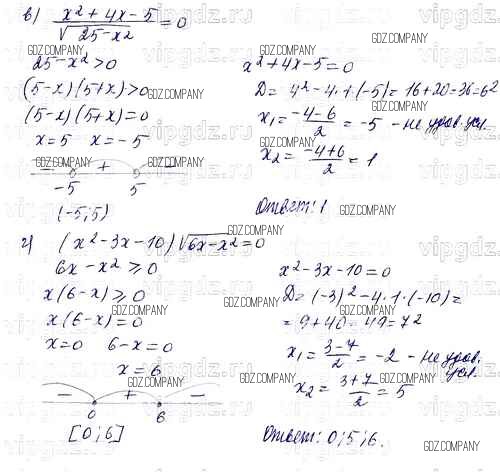 в) (x² + 4x - 5) / √(25 - x²) = 0
25 - x² > 0
(5 - x)(5 + x) > 0
(5 - x)(5 + x) = 0
x = 5   x = -5
-   +   -
-5   5
(-5; 5)
x² + 4x - 5 = 0
D = 4² - 4·1·(-5) = 16 + 20 = 36 = 6²
x₁ = (-4 - 6) / 2 = -5 - не удов. усл.
x₂ = (-4 + 6) / 2 = 1
Ответ: 1
г) (x² - 3x - 10)√(6x - x²) = 0
6x - x² ≥ 0
x(6 - x) ≥ 0
x(6 - x) = 0
x = 0   6 - x = 0
x = 6
-   +   -
0   6
[0; 6]
x² - 3x - 10 = 0
D = (-3)² - 4·1·(-10) =
= 9 + 40 = 49 = 7²
x₁ = (3 - 7) / 2 = -2 - не удов. усл.
x₂ = (3 + 7) / 2 = 5
Ответ: 0; 5; 6.
GDZ.COMPANY
vipgdz.ru